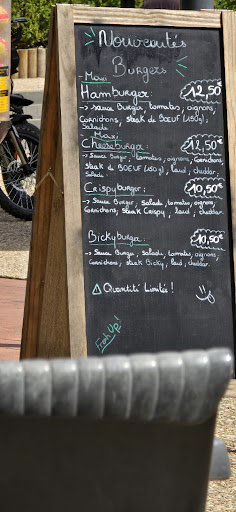 Nouveautés
Burgers
- Maxi
Hamburger: 12,50€
→ sauce Burger, tomates, oignons,
Cornichons, steak de BOEUF (150g),
Salade
- Maxi
Cheeseburger: 12,50€
→ Sauce Burger, tomates, oignons, Cornichons
steak de BOEUF (150g), lard, cheddar.
Salade
Crispyburger: 10,50€
→ Sauce Burger, Salade, tomates, oignons,
Cornichons, steak Crispy, lard, cheddar.
Bickyburger: 10,50€
→ Sauce Burger, salade, tomates, oignons,
Cornichons, steak Bicky, lard, cheddar.
⚠ Quantité Limitée !
Fresh Up!